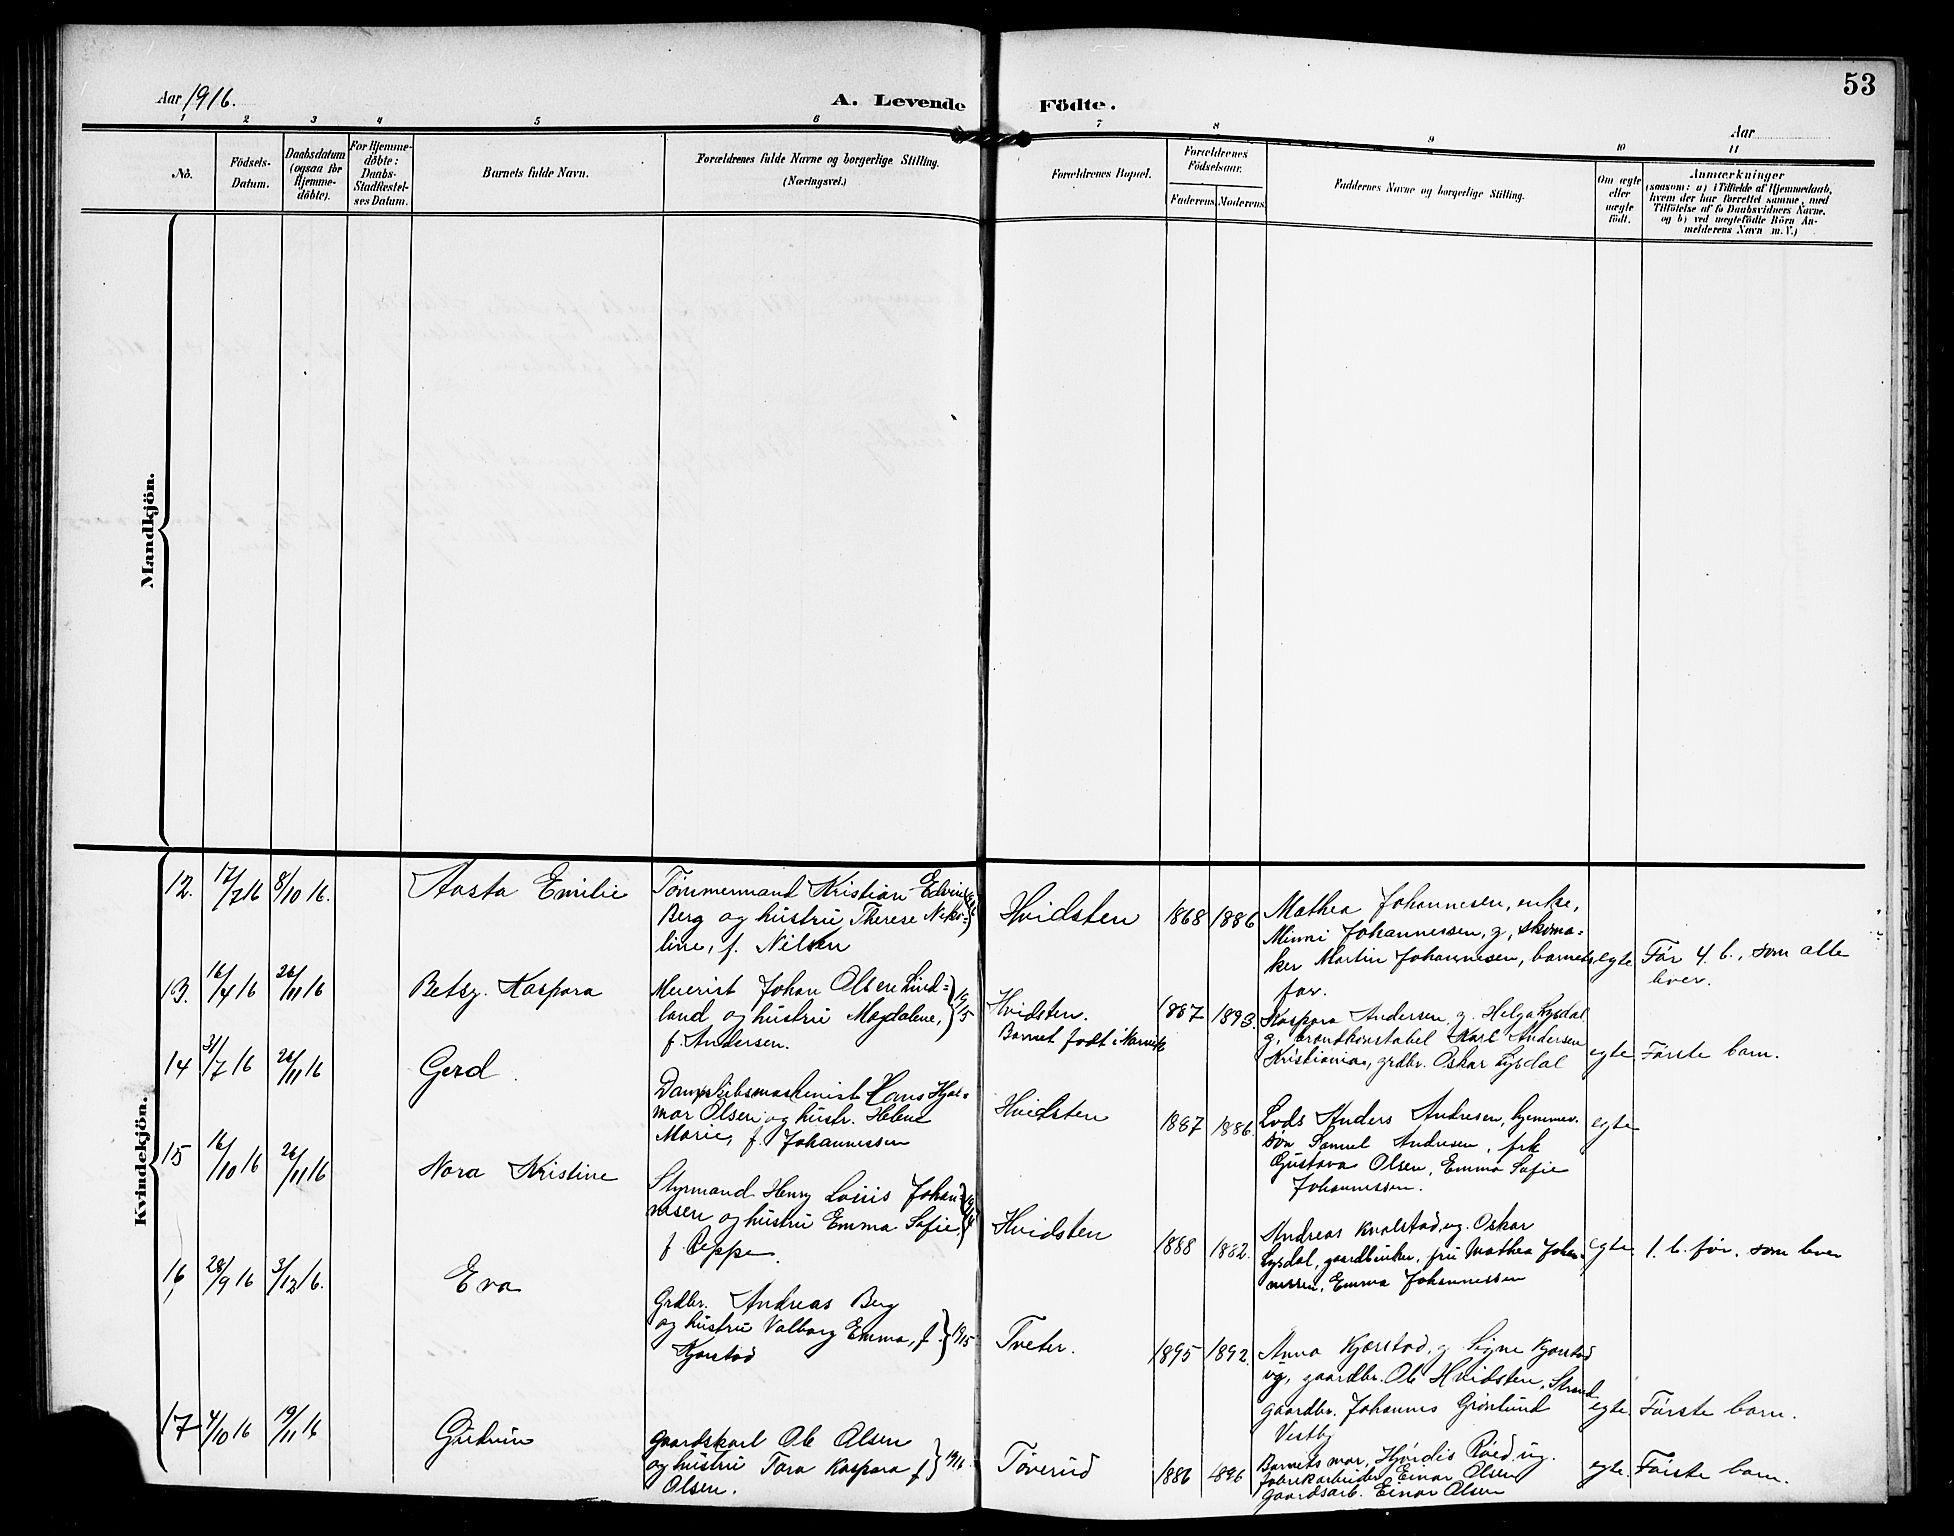 53
Aar 1916.
A. Levende Födte.
Aar
1 2 3 4 5 6 7 8 9 10 11
No.
Födsels-Datum.
Daabsdatum (ogsaa for Hjemme-döbte).
For Hjemme-döbte: Daabs-Stadfæstel-ses Datum.
Barnets fulde Navn.
Forældrenes fulde Navne og borgerlige Stilling. (Næringsvei.)
Forældrenes Bopæl.
Forældrenes Födselsaar.
Faderens. Moderens.
Faddernes Navne og borgerlige Stilling.
Om ægte eller uægte födt.
Anmærkninger
(saasom: a) i Tilfælde af Hjemmedaab,
hvem der har forrettet samme, med
Tilföielse af to Daabsvidners Navne.
og b) ved uægtefödte Börn An-
melderens Navn m. V.)
Mandkjön.
Kvindekjön.
12. 17/7 16 8/10 16. Aasta Emilie
Tømmermand Kristian Edvin
Berg og hustru Therese Niko=
line, f. Nilsen
Hvidsten 1868 1886
Mathea Johannesen, enke,
Minni Johannessen, g, skoma=
ker Martin Johannesen, barnets
far.
egte Før 4 b., som alle
lever.
13. 16/4 16 26/11 16 Betsy Kaspara
Meierist Johan Olsen Lind=
land og hustru Magdalene,
f. Andersen.
1915
Hvidsten.
Barnet født i
1887 1893.
Kaspara Andersen, g. Helga Lysdal
g, brandkonstabel Karl Andersen
Kristiania, grdbr. Oskar Lysdal
egte Første barn.
14 31/7 16 26/11 16 Gerd
Dampskibsmaskinist Hans Hjal=
mar Olsen og hustr. Helene
Marie, f. Johannessen
Hvidsten 1887 1886
Lods Anders Andresen, hjemmev.
søn Samuel Andresen, frk
Gustava Olsen, Emma Sofie
Johannessen.
egte
15 16/10 16 26/11 16 Nora Kristine
Styrmand Henry Louis Johan=
nesen og hustru Emma Sofie
f. Reppe
1914
Hvidsten 1888 1882.
Andreas Kvalstad, ug. Oskar
Lysdal, gaardbruker, fru Mathea Johan=
nessen, Emma Johannessen
egte 1. b. før, som lever
16 28/9 16 3/12 16. Eva
Grdbr. Andreas Berg
og hustru Valborg Emma, f.
Kjorstad
1915
Tveter. 1895 1892.
Anna Kjærstad, g Signe Kjorstad
ug, gaardbr. Ole Hvidsten, Strand
gaardbr. Johannes Grønlund
Vestby
egte. Første barn.
17 4/10 16 19/11 16 Gudrun
Gaardskarl Ole Olsen
og hustru Tora Kaspara f.
Olsen.
1916
Tøverud 1886 1896
Barnets mor, Hjørdis Røed, ug.
fabrikarbeider Einar Olsen
gaardsarb. Einar Olsen
egte. Første barn.